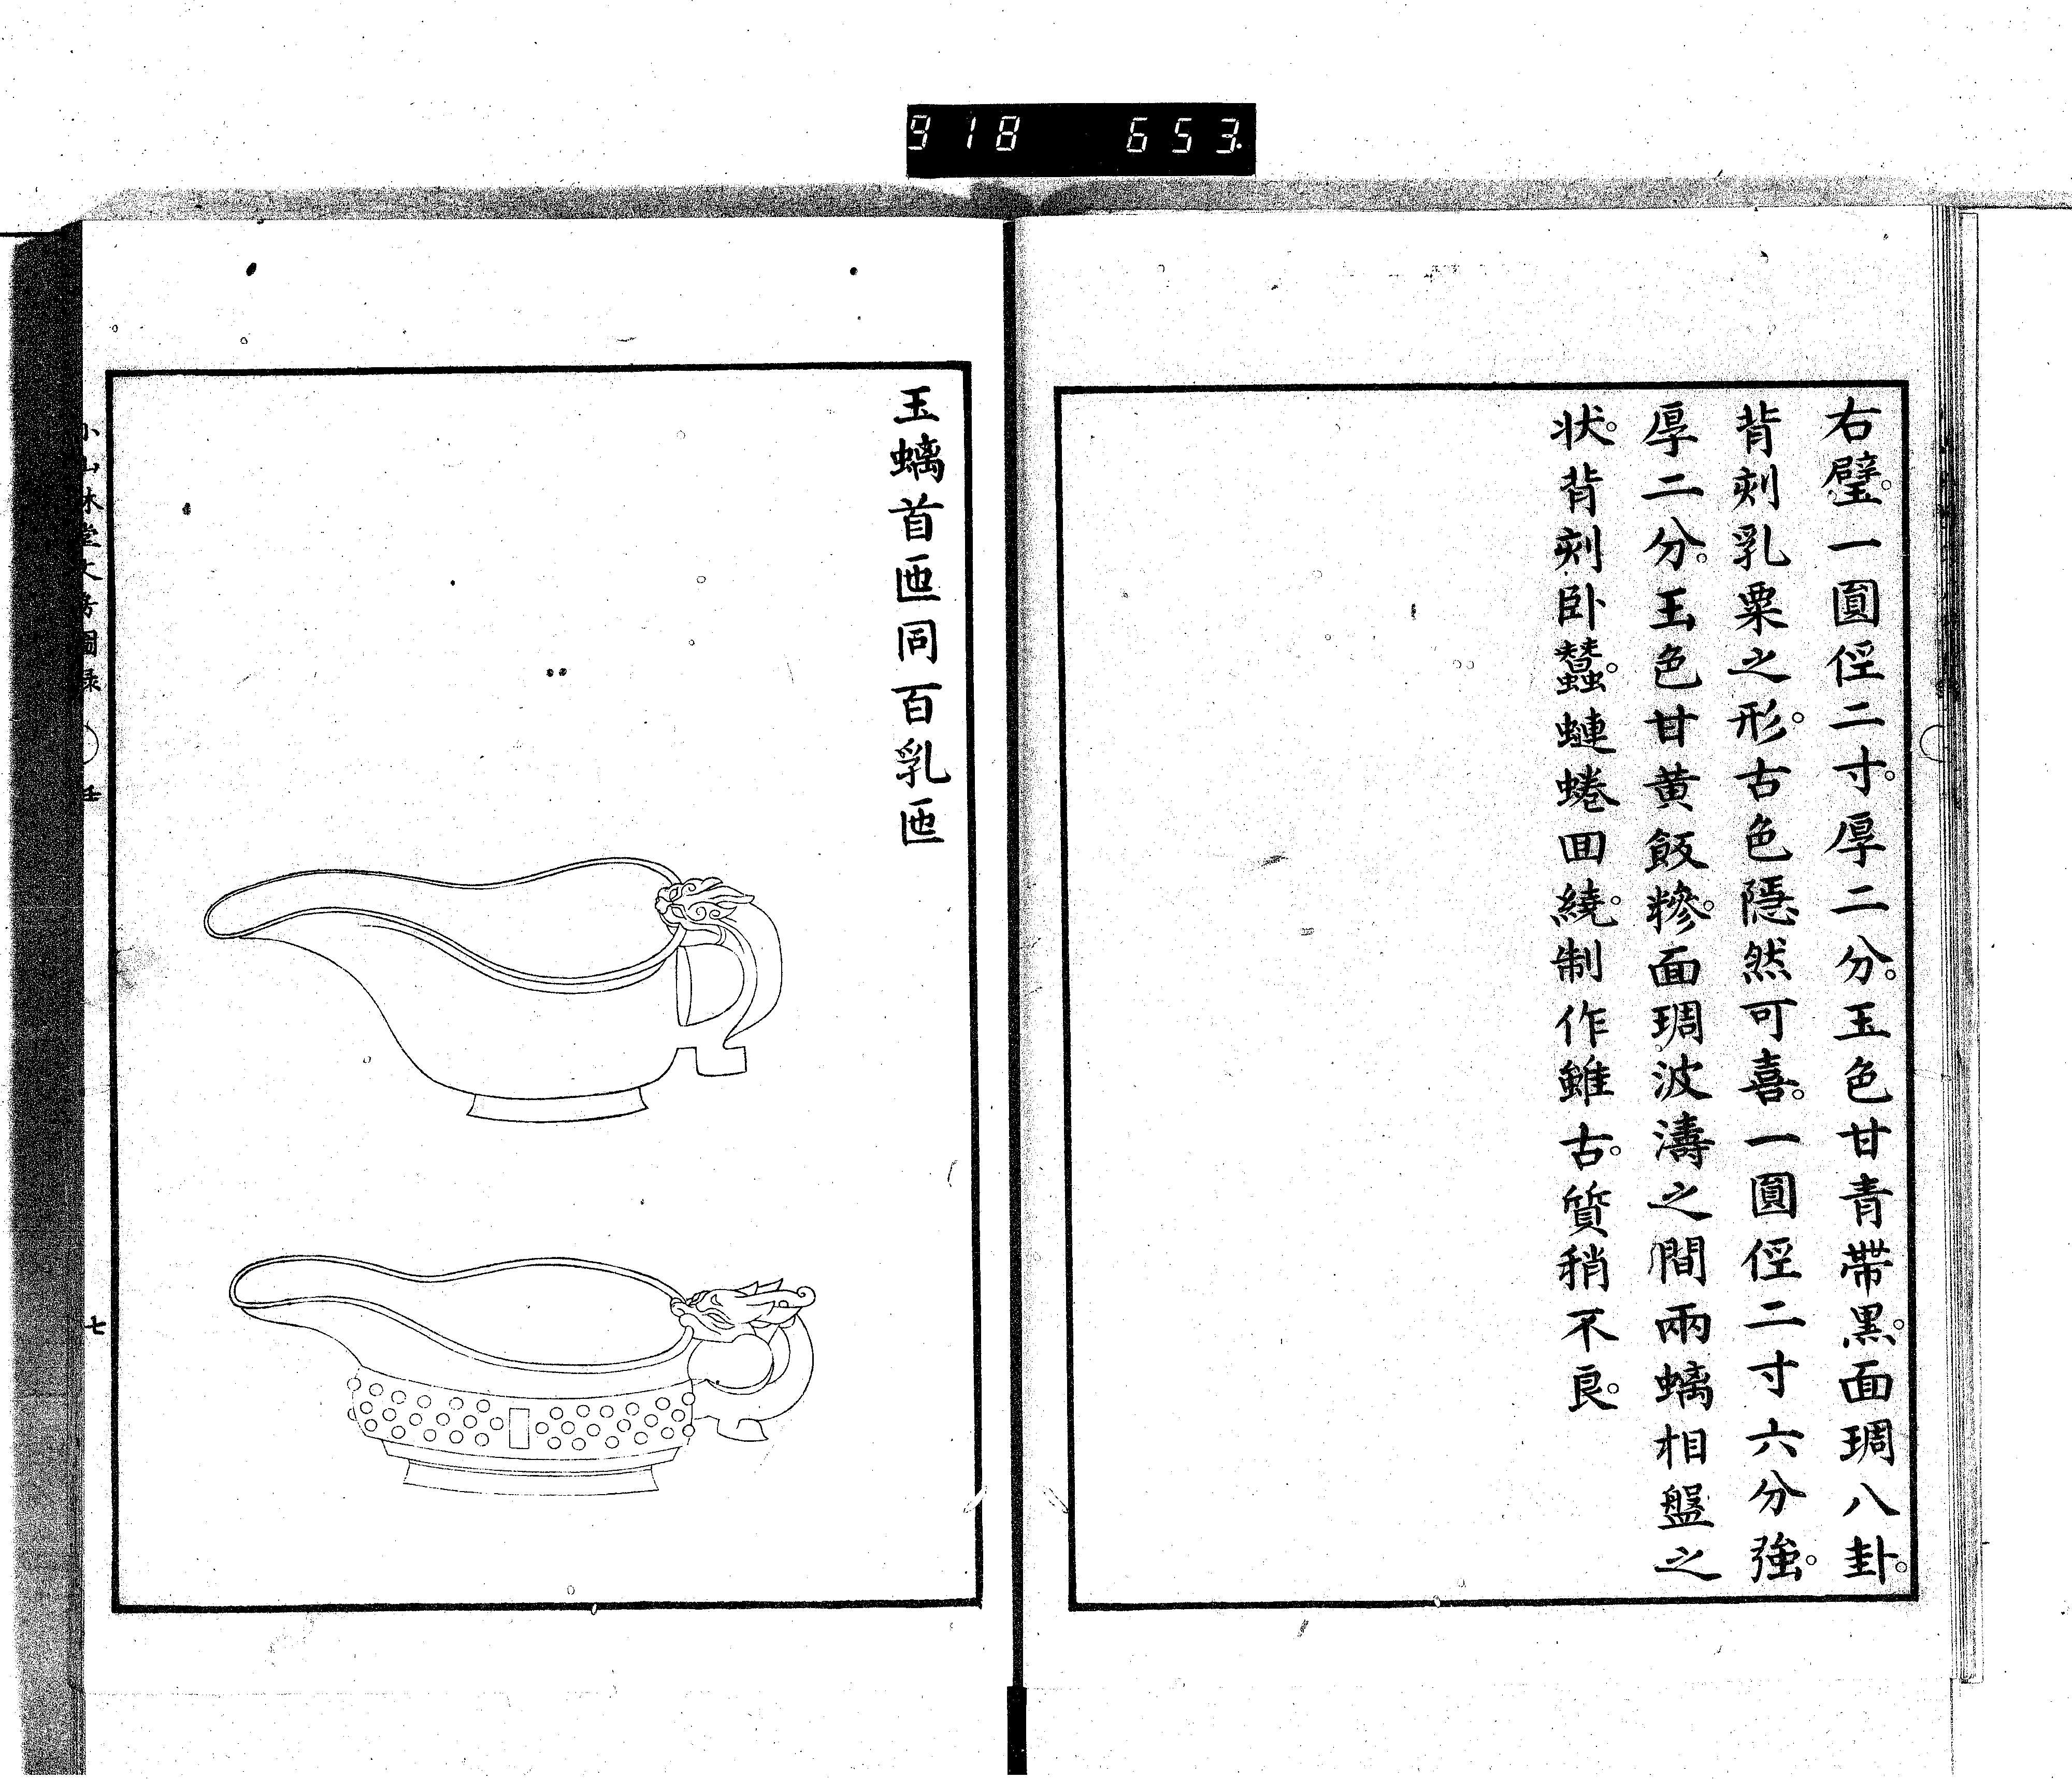 918 653.
右璧。一圓徑二寸。厚二分。玉色甘青帶黒。面琱八卦。
背刻乳粟之形。古色隱然可喜。一圓徑二寸六分強。
厚二分。玉色甘黄飯糝。面琱波濤之間兩螭相盤之
状。背刻卧蠶。蜨蜷回繞。制作雖古。質稍不良。
玉螭首匜同百乳匜
小山林堂文房圖録 壬
七